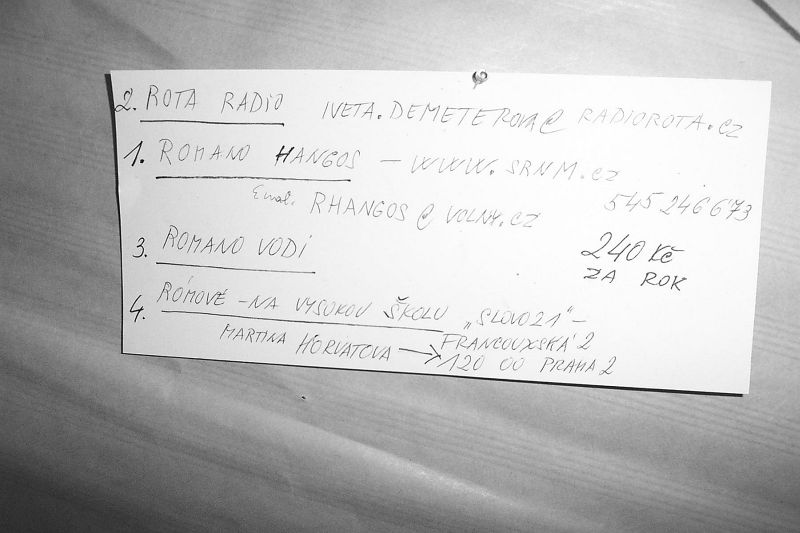 2. ROTA RADIO IVETA.DEMETEROVA@RADIOROTA.CZ
1. ROMANO HANGOS – WWW.SRNM.CZ
Email. RHANGOS@VOLNY.CZ 545 246 673
3. ROMANO VODI 240 Kč
ZA ROK
4. RÓMOVÉ – NA VYSOKOU ŠKOLU „SLOVO21" –
MARTINA HORVATOVA → FRANCOUXSKÁ 2
120 00 PRAHA 2